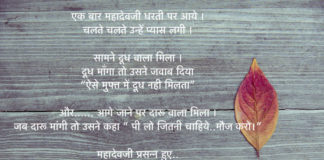 एक बार महादेवजी धरती पर आये ।
चलते चलते उन्हें प्यास लगी ।
सामने दूध वाला मिला ।
दूध मांगा तो उसने जवाब दिया
"ऐसे मुफ्त में दूध नही मिलता"
और...... आगे जाने पर दारू वाला मिला ।
जब दारू मांगी तो उसने कहा " पी लो जितनी चाहिये..मौज करो।"
महादेवजी प्रसन्न हुए..